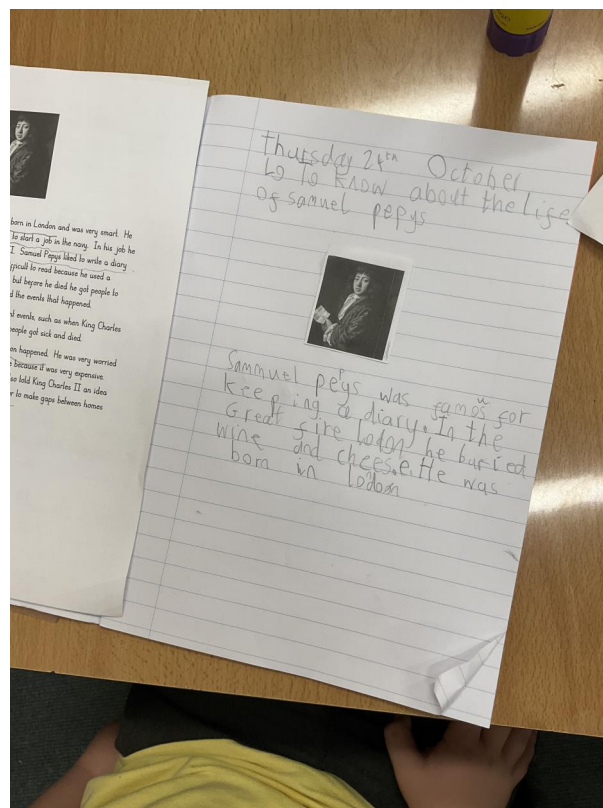 born in London and was very smart. He
to start a job in the navy. In his job he
I. Samuel Pepys liked to write a diary
difficult to read because he used a
but before he died he got people to
d the events that happened.
nt events, such as when King Charles
people got sick and died.
on happened. He was very worried
because it was very expensive.
so told King Charles II an idea
r to make gaps between homes
Thursday 24th October
Lo To know about the life
Of samuel pepys
Sammuel pepys was famous for
keeping a diary. In the
Great fire lodon he buried
wine and cheese. He was
born in lodon